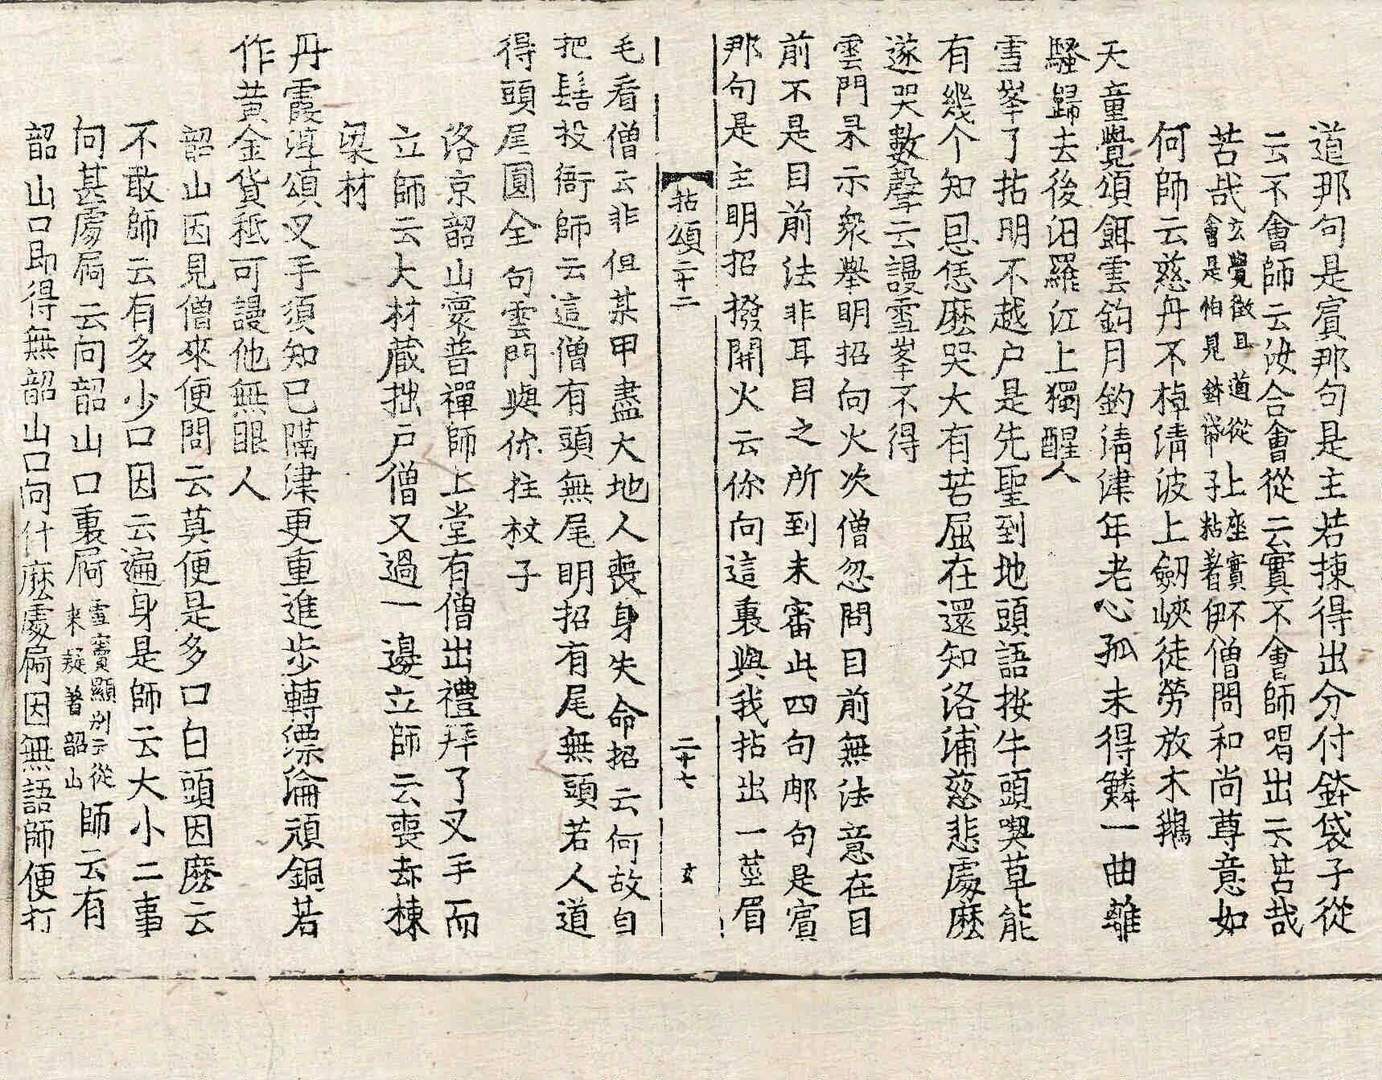 道那句是賔那句是主若揀得出分付鉢袋子從
云不會師云汝合會從云實不會師喝出云苦哉
苦哉玄覺徵且道從上座實不會是怕見鉢袋子粘著伊僧問和尚尊意如
何師云慈丹不棹清波上劒峽徒勞放木鵝
天童覺頌餌雲鈎月釣淸津年老心孤未得鱗一曲離
騷歸去後汨羅江上獨醒人
雪峯了拈明不越户是先聖到地頭語按牛頭喫草能
有幾个知恩恁麽哭大有苦屈在還知洛浦慈悲處麽
遂哭數聲云謾雪峯不得
雲門杲示衆擧明招向火次僧忽問目前無法意在目
前不是目前法非耳目之所到未審此四句那句是賔
那句是主明招撥開火云你向這裏與我拈出一莖眉
拈頌二十二 二十七 玄
毛看僧云非但某甲盡大地人喪身失命招云何故自
把髻投衙師云這僧有頭無尾明招有尾無頭若人道
得頭尾圓全句雲門與你拄杖子
洛京韶山寰普禪師上堂有僧出禮拜了叉手而
立師云大材藏拙户僧又過一邊立師云喪却棟
梁材
丹霞淳頌叉手須知已隔津更重進步轉漂淪頑銅若
作黃金貨秪可謾他無眼人
韶山因見僧來便問云莫便是多口白頭因麽云
不敢師云有多少口因云遍身是師云大小二事
向甚處屙云向韶山口裏屙雪竇顯別云從來疑著韶山師云有
韶山口即得無韶山口向什麽處屙因無語師便打